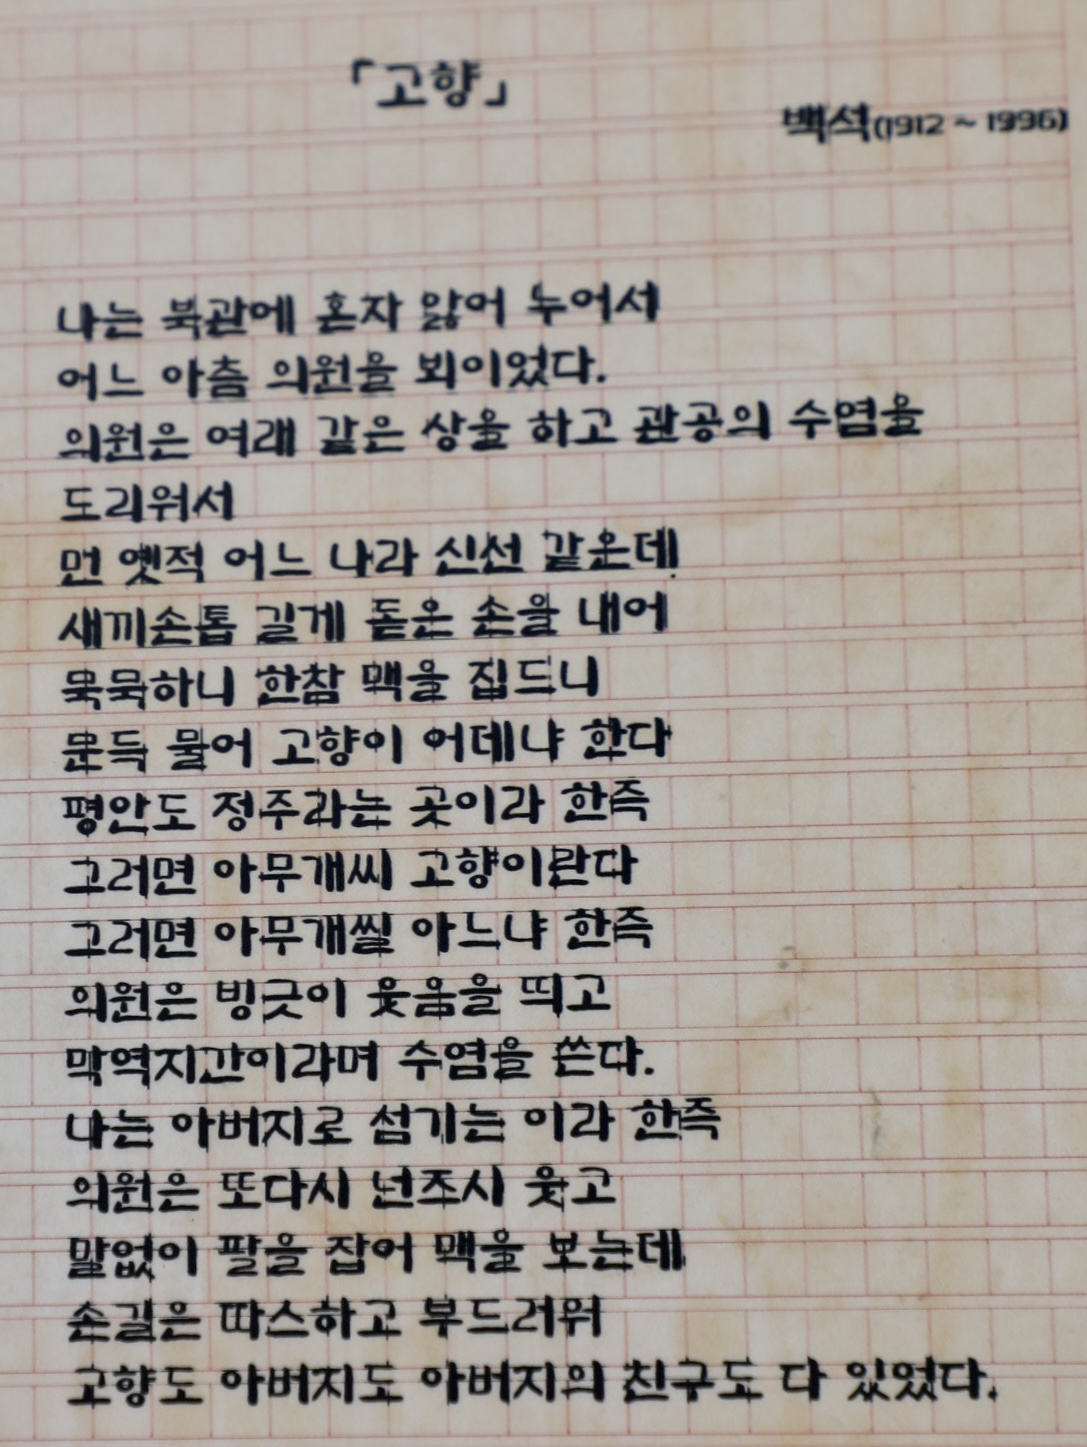 「고향」
백석(1912 ~ 1996)
나는 북관에 혼자 앓어 누어서
어느 아츰 의원을 뵈이었다.
의원은 여래 같은 상을 하고 관공의 수염을
도리워서
먼 옛적 어느 나라 신선 같은데
새끼손톱 길게 돋은 손을 내어
묵묵하니 한참 맥을 집드니
문득 물어 고향이 어데냐 한다
평안도 정주라는 곳이라 한즉
그러면 아무개씨 고향이란다
그러면 아무개씰 아느냐 한즉
의원은 빙긋이 웃음을 띄고
막역지간이라며 수염을 쓴다.
나는 아버지로 섬기는 이라 한즉
의원은 또다시 넌즈시 웃고
말없이 팔을 잡어 맥을 보는데
손길은 따스하고 부드러워
고향도 아버지도 아버지의 친구도 다 있었다.